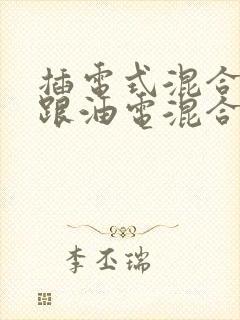 插電式混合
跟油電混合
李丕瑞